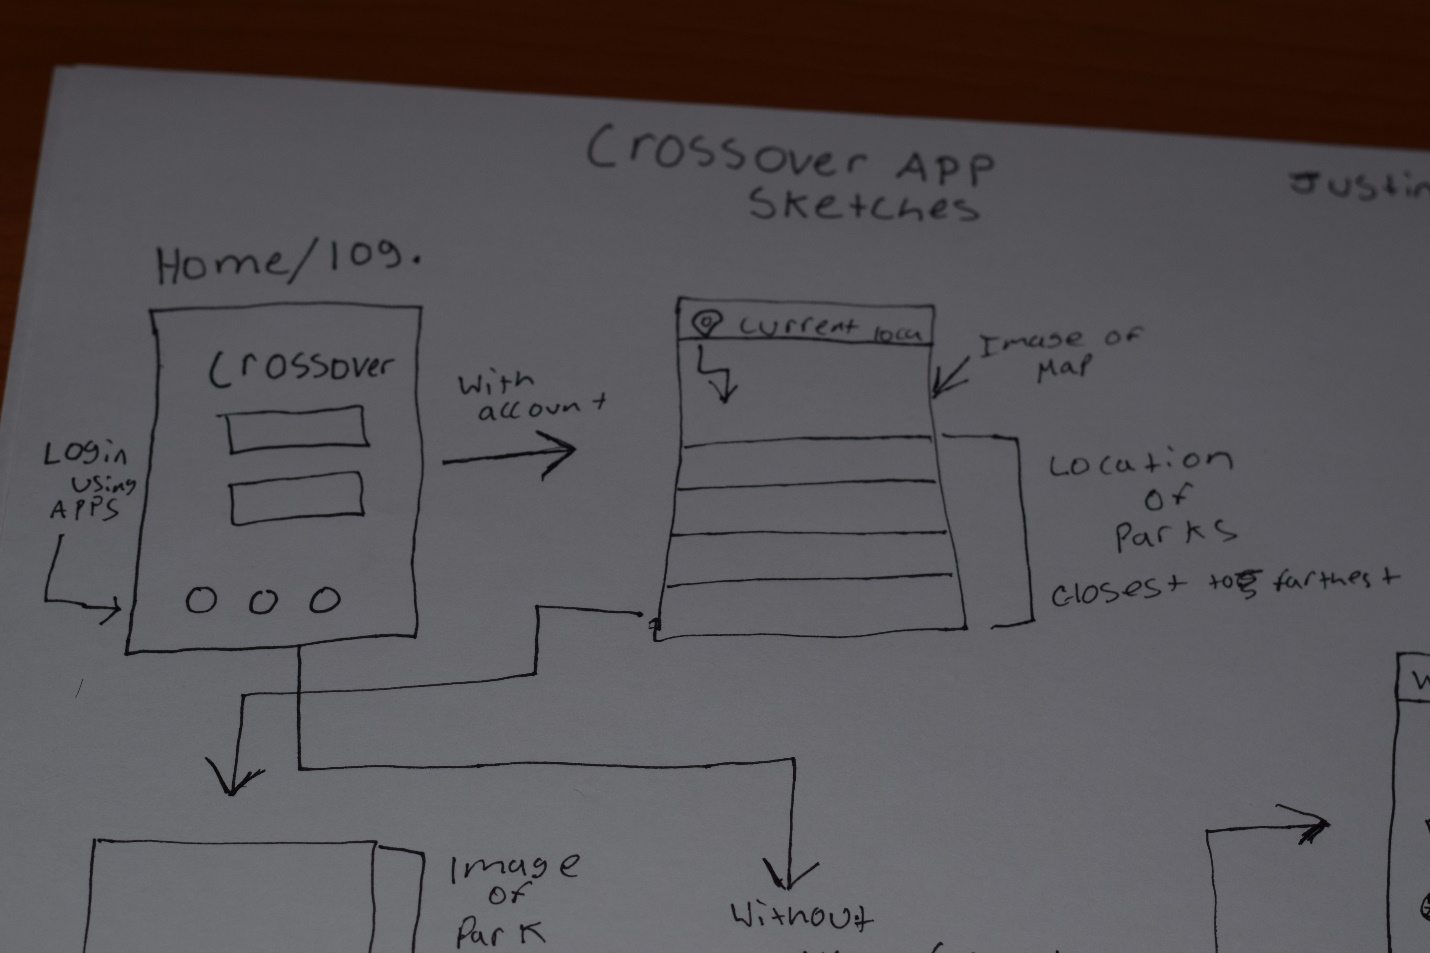 Crossover APP
Sketches
Justin
Home/log.
Crossover
Login
using
APPS
With
account
current loca
Image of
Map
Location
of
Parks
closest to farthest
Image
of
Park
Without
W